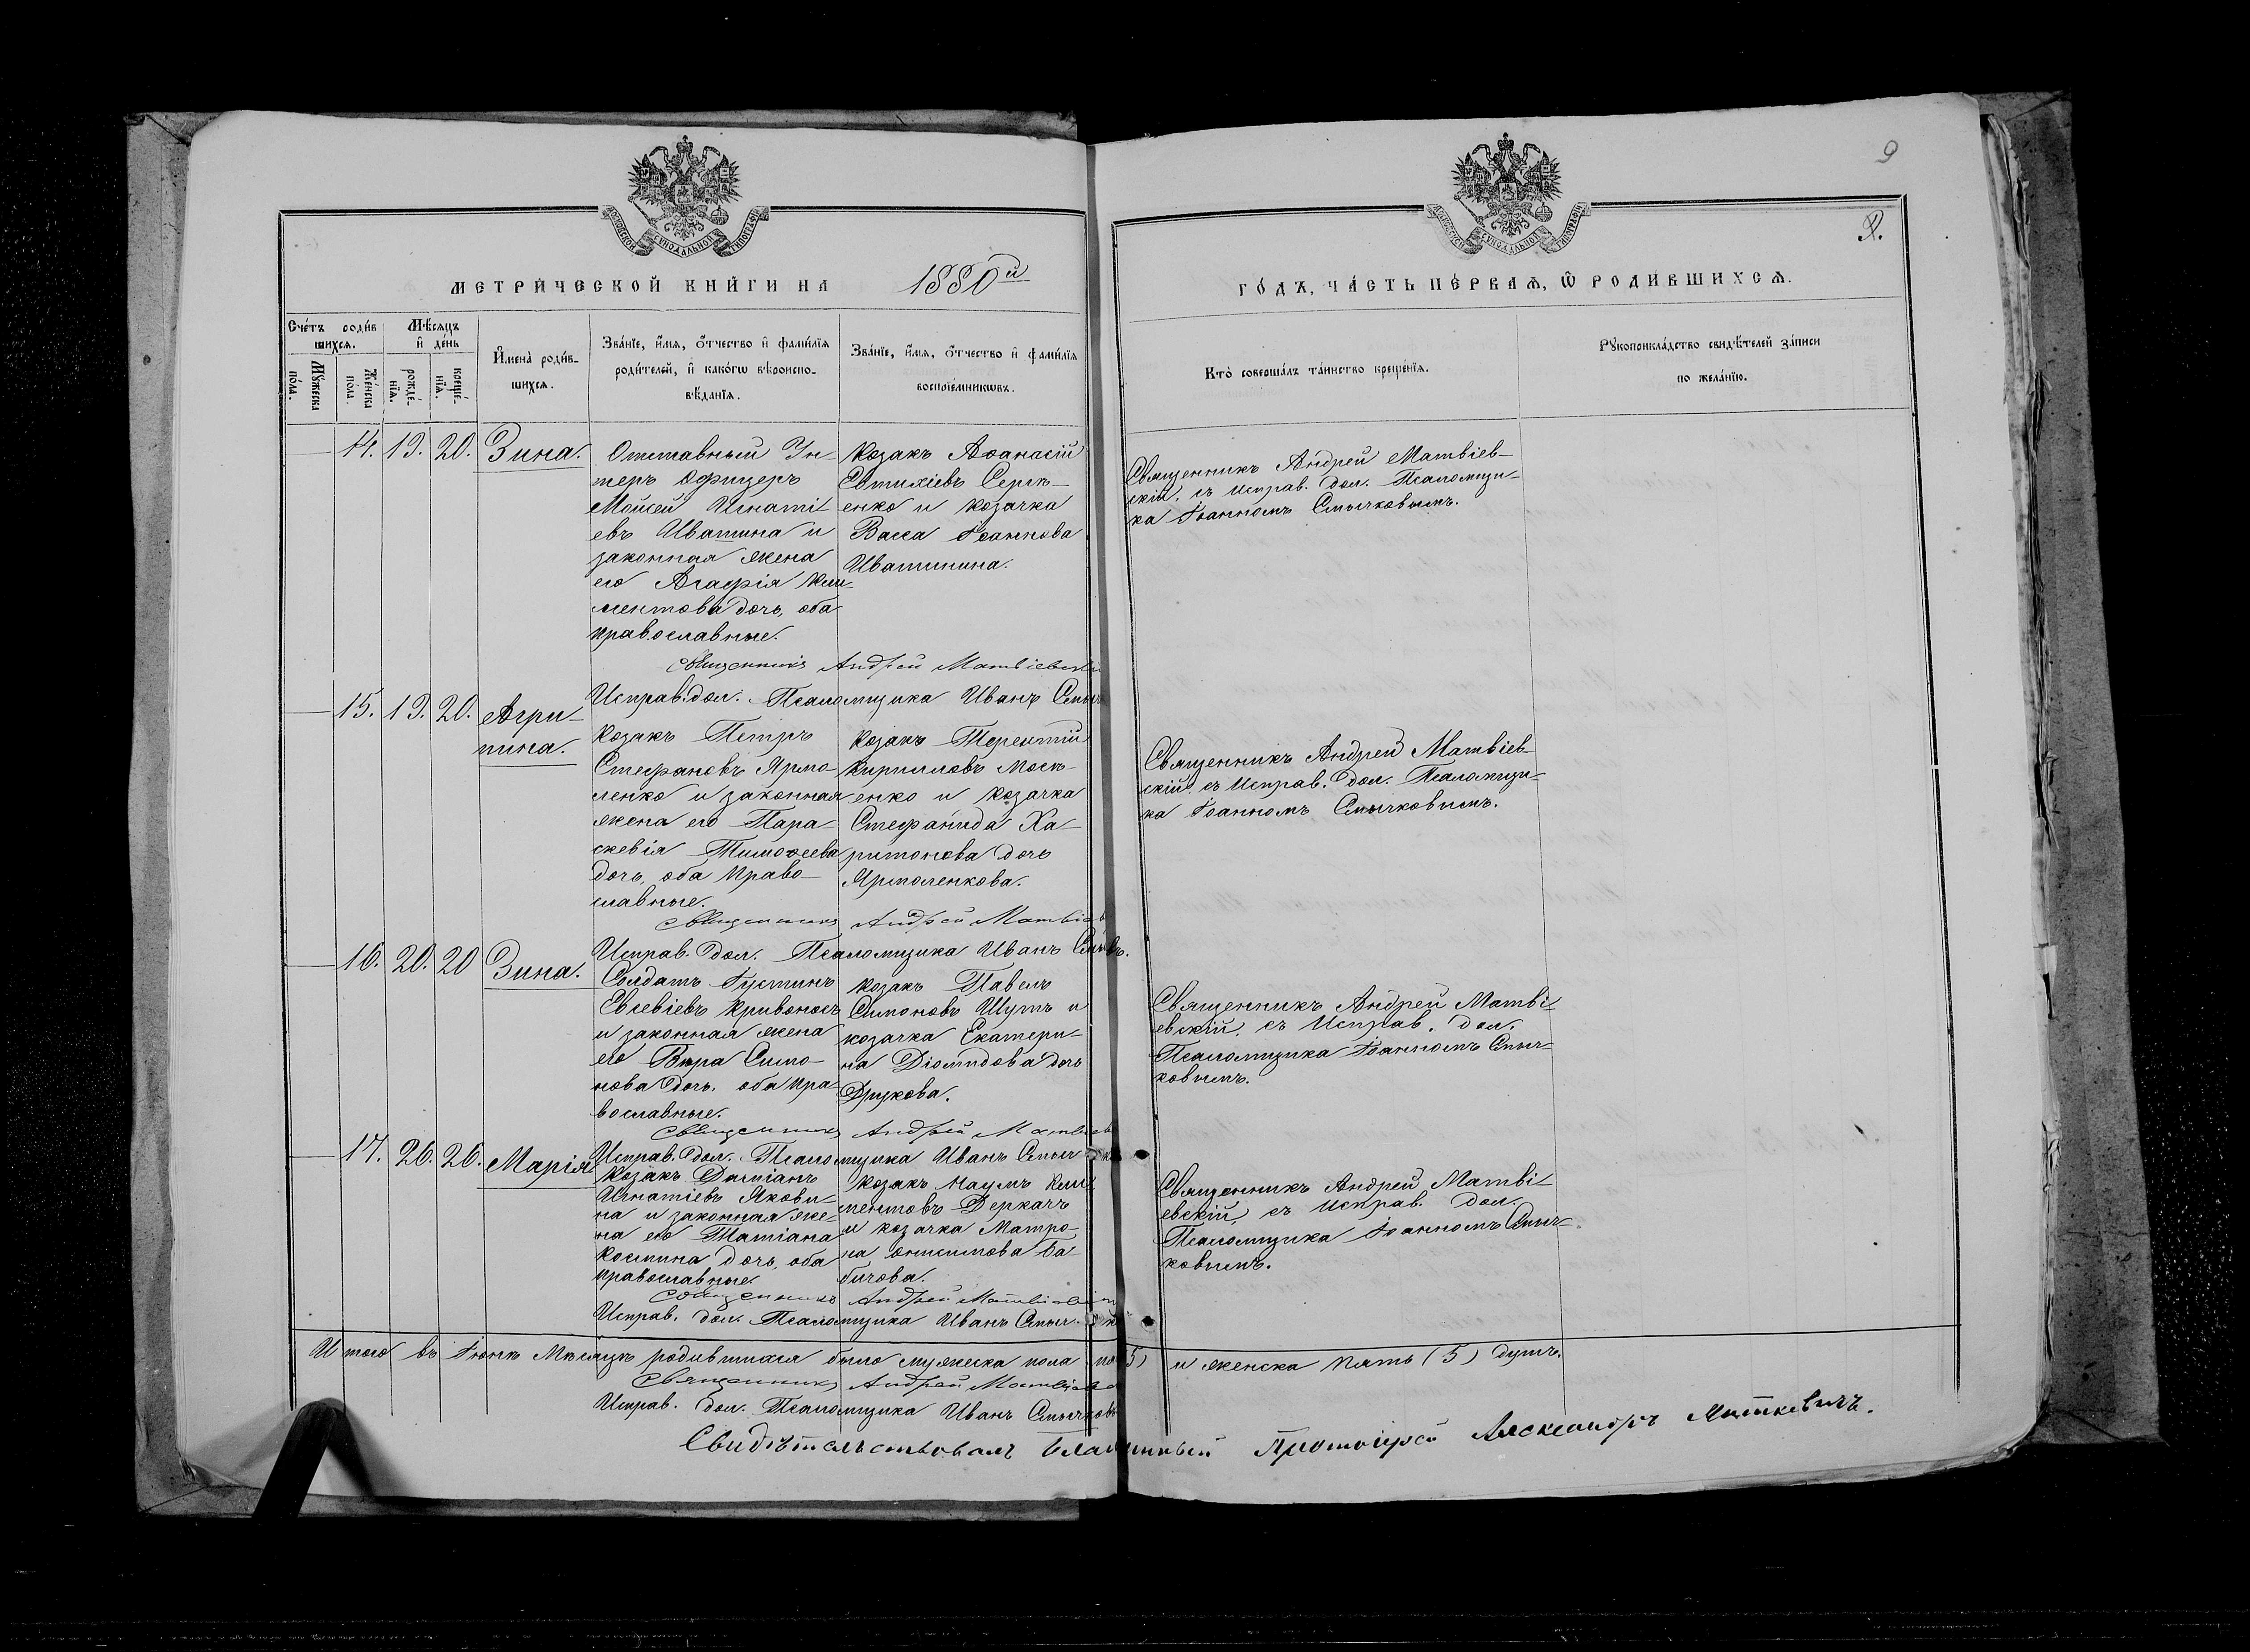 9
МОСКОВСКОЙ СѴНОДАЛЬНОЙ ТИПОГРАФІИ
МОСКОВСКОЙ СѴНОДАЛЬНОЙ ТИПОГРАФІИ
МЕТРИ́ЧЕСКОЙ КНИ́ГИ НА 1880й
ГО́ДЪ, ЧА́СТЬ ПЕ́РВАѦ, Ѡ҆ РОДИ́ВШИХСѦ.
Сче́тъ роди́вшихсѧ.
Мѣ́сѧцъ и҆ де́нь
Мꙋ́жеска по́ла.
Же́нска по́ла.
рожде́нїѧ.
креще́нїѧ.
И҆мена̀ роди́вшихсѧ.
Зва́нїе, и҆́мѧ, о҆́тчество и҆ фами́лїѧ
роди́телей, и҆ како́гѡ вѣроиспо-
вѣ́данїѧ.
Зва́нїе, и҆́мѧ, о҆́тчество и҆ фами́лїѧ
воспрїе́мникѡвъ.
Кто̀ соверша́лъ та́инство креще́нїѧ.
Рꙋкоприкла́дство свидѣ́телей за́писи
по жела́нїю.
14. 19. 20. Зина.
Отставный Ун-
теръ Офицеръ
Мойсей Игнаті
евъ Иватина и
законная жена
его Агафія Кли
ментова дочь, оба
православные.
Козакъ Аѳанасій
Евтихіевъ Сергѣ-
енко и козачка
Васса Іоаннова
Иватинина.
Священникъ Андрей Матвіев-
скій, съ Исправ. дол. Псаломщи-
ка Іоанномъ Смычковымъ.
Священникъ Андрей Матвіевскі
Исправ. дол. Псаломщика Иванъ Смыч
15. 19. 20. Агри-
пина.
Козакъ Петръ
Стефановъ Ярмо-
ленко и законная
жена его Пара-
скевія Тимоѳеева
дочь, оба право-
славные.
Козакъ Терентій
Кирилловъ Моск-
енко и козачка
Стефанида Ха-
ритонова дочь
Ярмоленкова.
Священникъ Андрей Матвіев-
скій съ Исправ. дол. Псаломщи-
ка Іоанномъ Смычковымъ.
Священникъ Андрей Матвіев
Исправ. дол. Псаломщика Иванъ
16. 20. 20 Зина.
Солдатъ Іустинъ
Евсевіевъ Кривоносъ
и законная жена
его Вѣра Симо-
нова дочь, оба пра-
вославные.
Козакъ Павелъ
Симоновъ Шутъ и
козачка Екатери-
на Діомидова дочь
Священникъ Андрей Матві-
евскій, съ Исправ. дол.
Псаломщика Іоанномъ Смыч-
ковымъ.
Священникъ Андрей Матвіев
Исправ. дол. Псаломщика Иванъ Смыч
17. 26. 26. Марія
Козакъ Даміанъ
Игнатіевъ Якови-
на и законная же-
на его Татіана
Космина дочь, оба
православные.
Козакъ Наумъ Кли
ментовъ Деркачъ
и козачка Матро-
на Онисимова Ба-
бичова.
Священникъ Андрей Матві-
евскій, съ Исправ. дол.
Псаломщика Іоанномъ Смыч-
ковымъ.
Священникъ Андрей Матвіевс
Исправ. дол. Псаломщика Иванъ Смыч
Итого въ Іюнѣ Мѣсяцѣ родившихся было мужеска пола 5) и женска пять (5) душъ.
Священникъ Андрей Матвіевс
Исправ. дол. Псаломщика Иванъ Смычковъ
Свидѣтельствовалъ Благочинный Протоіерей Александръ Миткевичъ.